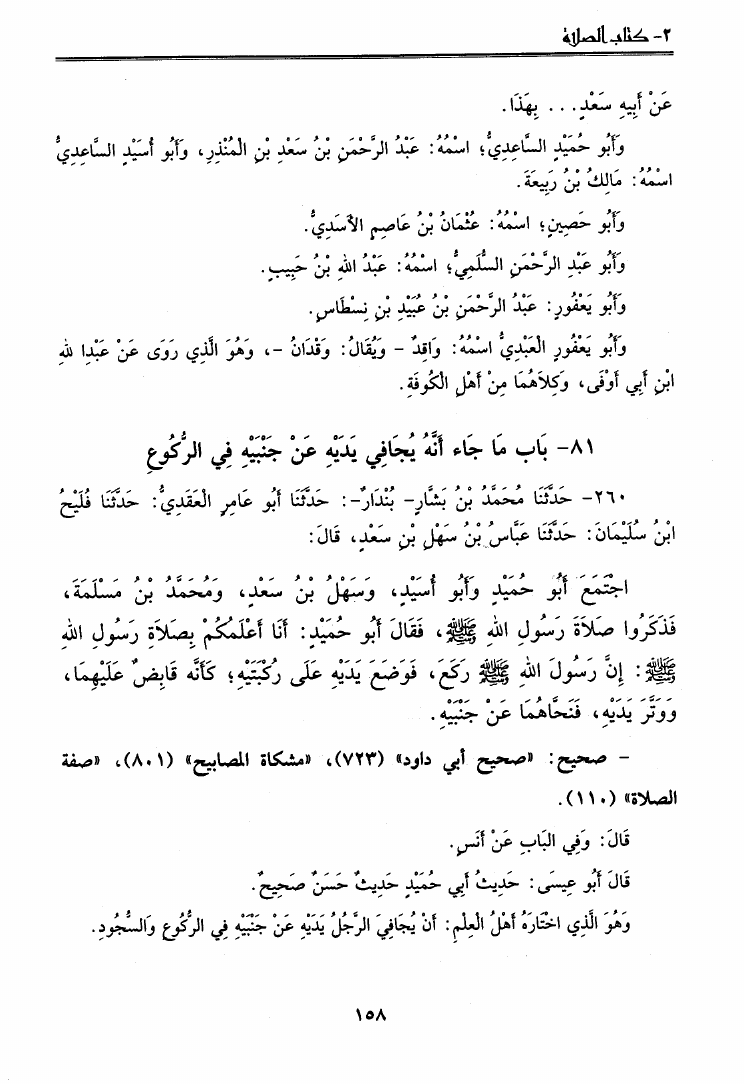 ٢- كتاب الصلاة
عَنْ أَبِيهِ سَعْدٍ... بِهَذَا.
وَأَبُو حُمَيْدٍ السَّاعِدِيُّ؛ اسْمُهُ: عَبْدُ الرَّحْمَنِ بْنُ سَعْدِ بْنِ الْمُنْذِرِ، وَأَبُو أُسَيْدٍ السَّاعِدِيُّ
اسْمُهُ: مَالِكُ بْنُ رَبِيعَةَ.
وَأَبُو حَصِينٍ؛ اسْمُهُ: عُثْمَانُ بْنُ عَاصِمٍ الأَسَدِيُّ.
وَأَبُو عَبْدِ الرَّحْمَنِ السُّلَمِيُّ؛ اسْمُهُ: عَبْدُ اللهِ بْنُ حَبِيبٍ.
وَأَبُو يَعْفُورٍ: عَبْدُ الرَّحْمَنِ بْنُ عُبَيْدِ بْنِ نِسْطَاسٍ.
وَأَبُو يَعْفُورٍ الْعَبْدِيُّ اسْمُهُ: وَاقِدٌ - وَيُقَالُ: وَقْدَانُ -، وَهُوَ الَّذِي رَوَى عَنْ عَبْدِا للهِ
ابْنِ أَبِي أَوْفَى، وَكِلاَهُمَا مِنْ أَهْلِ الْكُوفَةِ.
٨١- بَاب مَا جَاء أَنَّهُ يُجَافِي يَدَيْهِ عَنْ جَنْبَيْهِ فِي الرُّكُوعِ
٢٦٠- حَدَّثَنَا مُحَمَّدُ بْنُ بَشَّارٍ- بُنْدَارٌ-: حَدَّثَنَا أَبُو عَامِرٍ الْعَقَدِيُّ: حَدَّثَنَا فُلَيْحُ
ابْنُ سُلَيْمَانَ: حَدَّثَنَا عَبَّاسُ بْنُ سَهْلِ بْنِ سَعْدٍ، قَالَ:
اجْتَمَعَ أَبُو حُمَيْدٍ وَأَبُو أُسَيْدٍ، وَسَهْلُ بْنُ سَعْدٍ، وَمُحَمَّدُ بْنُ مَسْلَمَةَ،
فَذَكَرُوا صَلاَةَ رَسُولِ اللهِ ﷺ، فَقَالَ أَبُو حُمَيْدٍ: أَنَا أَعْلَمُكُمْ بِصَلاَةِ رَسُولِ اللهِ
ﷺ: إِنَّ رَسُولَ اللهِ ﷺ رَكَعَ، فَوَضَعَ يَدَيْهِ عَلَى رُكْبَتَيْهِ؛ كَأَنَّه قَابِضٌ عَلَيْهِمَا،
وَوَتَّرَ يَدَيْهِ، فَنَحَّاهُمَا عَنْ جَنْبَيْهِ.
- صحيح: «صحيح أبي داود» (٧٢٣)، «مشكاة المصابيح» (٨٠١)، «صفة
الصلاة» (١١٠).
قَالَ: وَفِي الْبَابِ عَنْ أَنَسٍ.
قَالَ أَبُو عِيسَى: حَدِيثُ أَبِي حُمَيْدٍ حَدِيثٌ حَسَنٌ صَحِيحٌ.
وَهُوَ الَّذِي اخْتَارَهُ أَهْلُ الْعِلْمِ: أَنْ يُجَافِيَ الرَّجُلُ يَدَيْهِ عَنْ جَنْبَيْهِ فِي الرُّكُوعِ وَالسُّجُودِ.
١٥٨